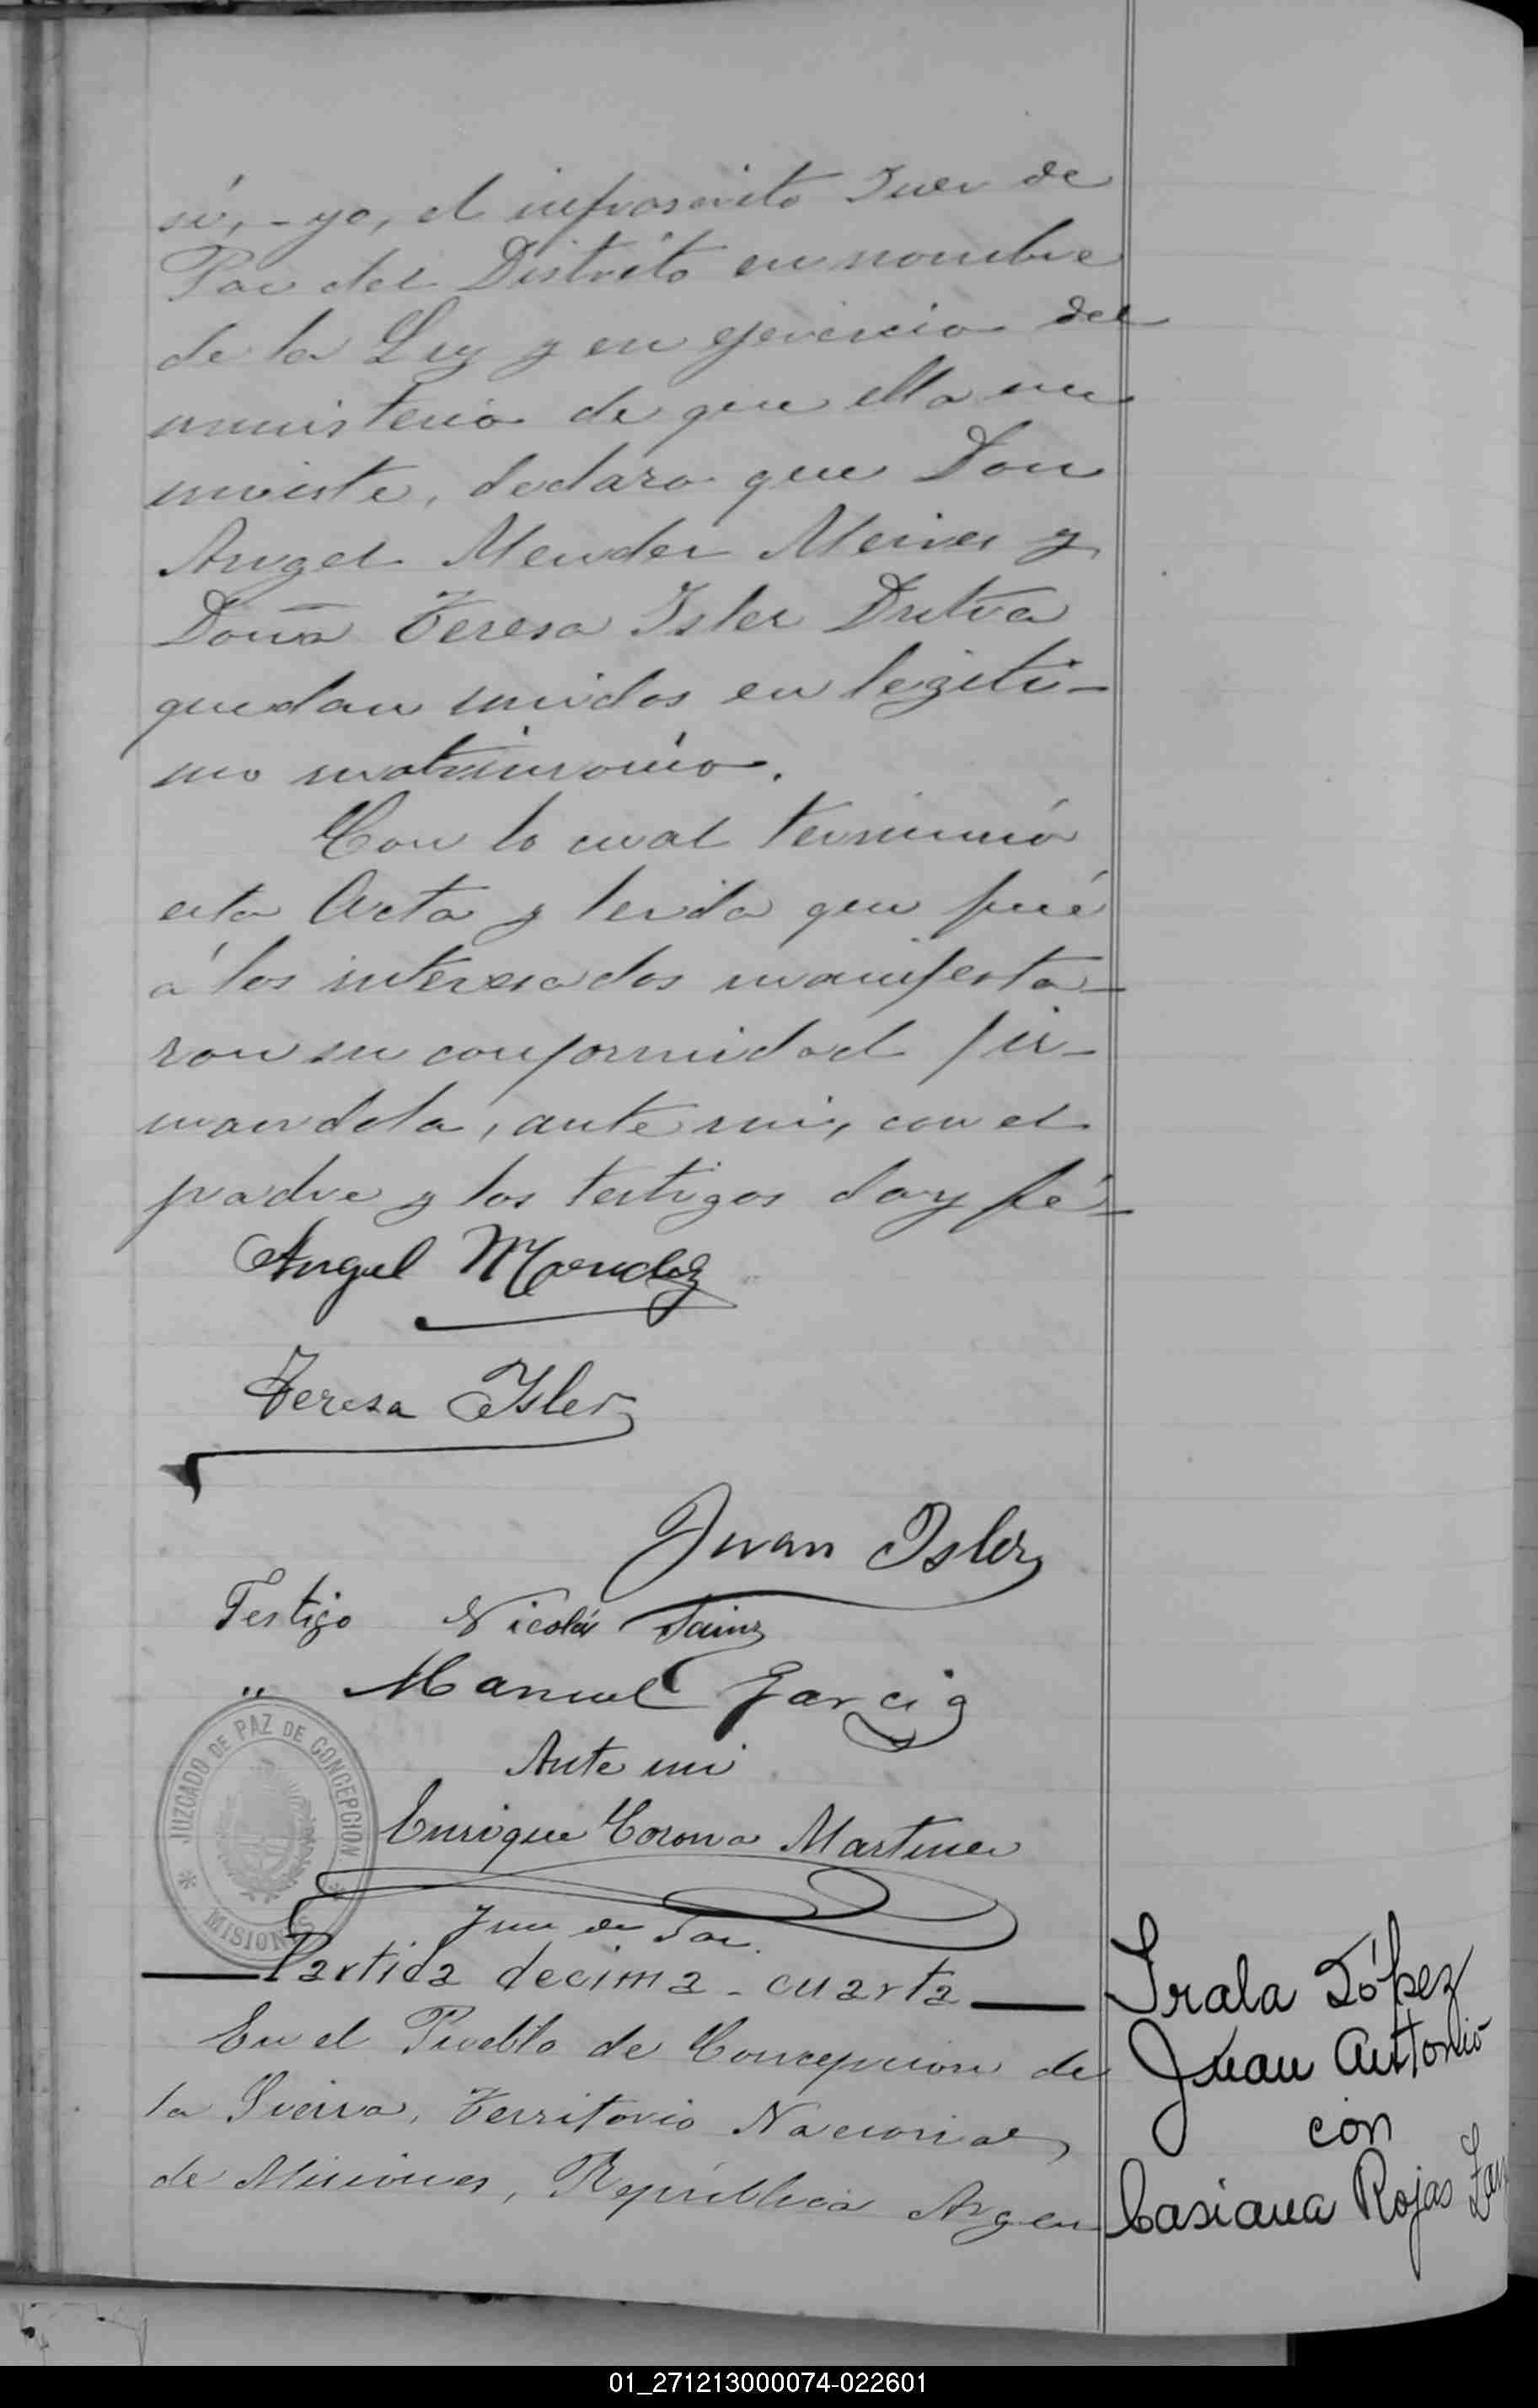 sí, - yo, el infrascrito Juez de
Paz del Distrito en nombre
de la Ley y en ejercicio del
ministerio de que ella me
inviste, declaro que Don
Angel Mendez Meiver y
Doña Teresa Isler Dutra
quedan unidos en legiti-
mo matrimonio.
Con lo cual terminó
esta Acta y leida que fué
á los interesados manifesta-
ron su conformidad fir-
mandola, ante mi, con el
padre y los testigos doy fé-
Angel Mendez
Teresa Isler
Juan Isler
Testigo Nicolás Sainz
" Manuel Garcia
Ante mi
JUZGADO DE PAZ DE CONCEPCION
MISIONES
Enrique Corona Martinez
Juez de Paz.
Partida decima - cuarta
En el Pueblo de Concepcion de
la Sierra, Territorio Nacional
de Misiones, República Argen
Irala López
Juan Antonio
con
Casiana Rojas
01_271213000074-022601